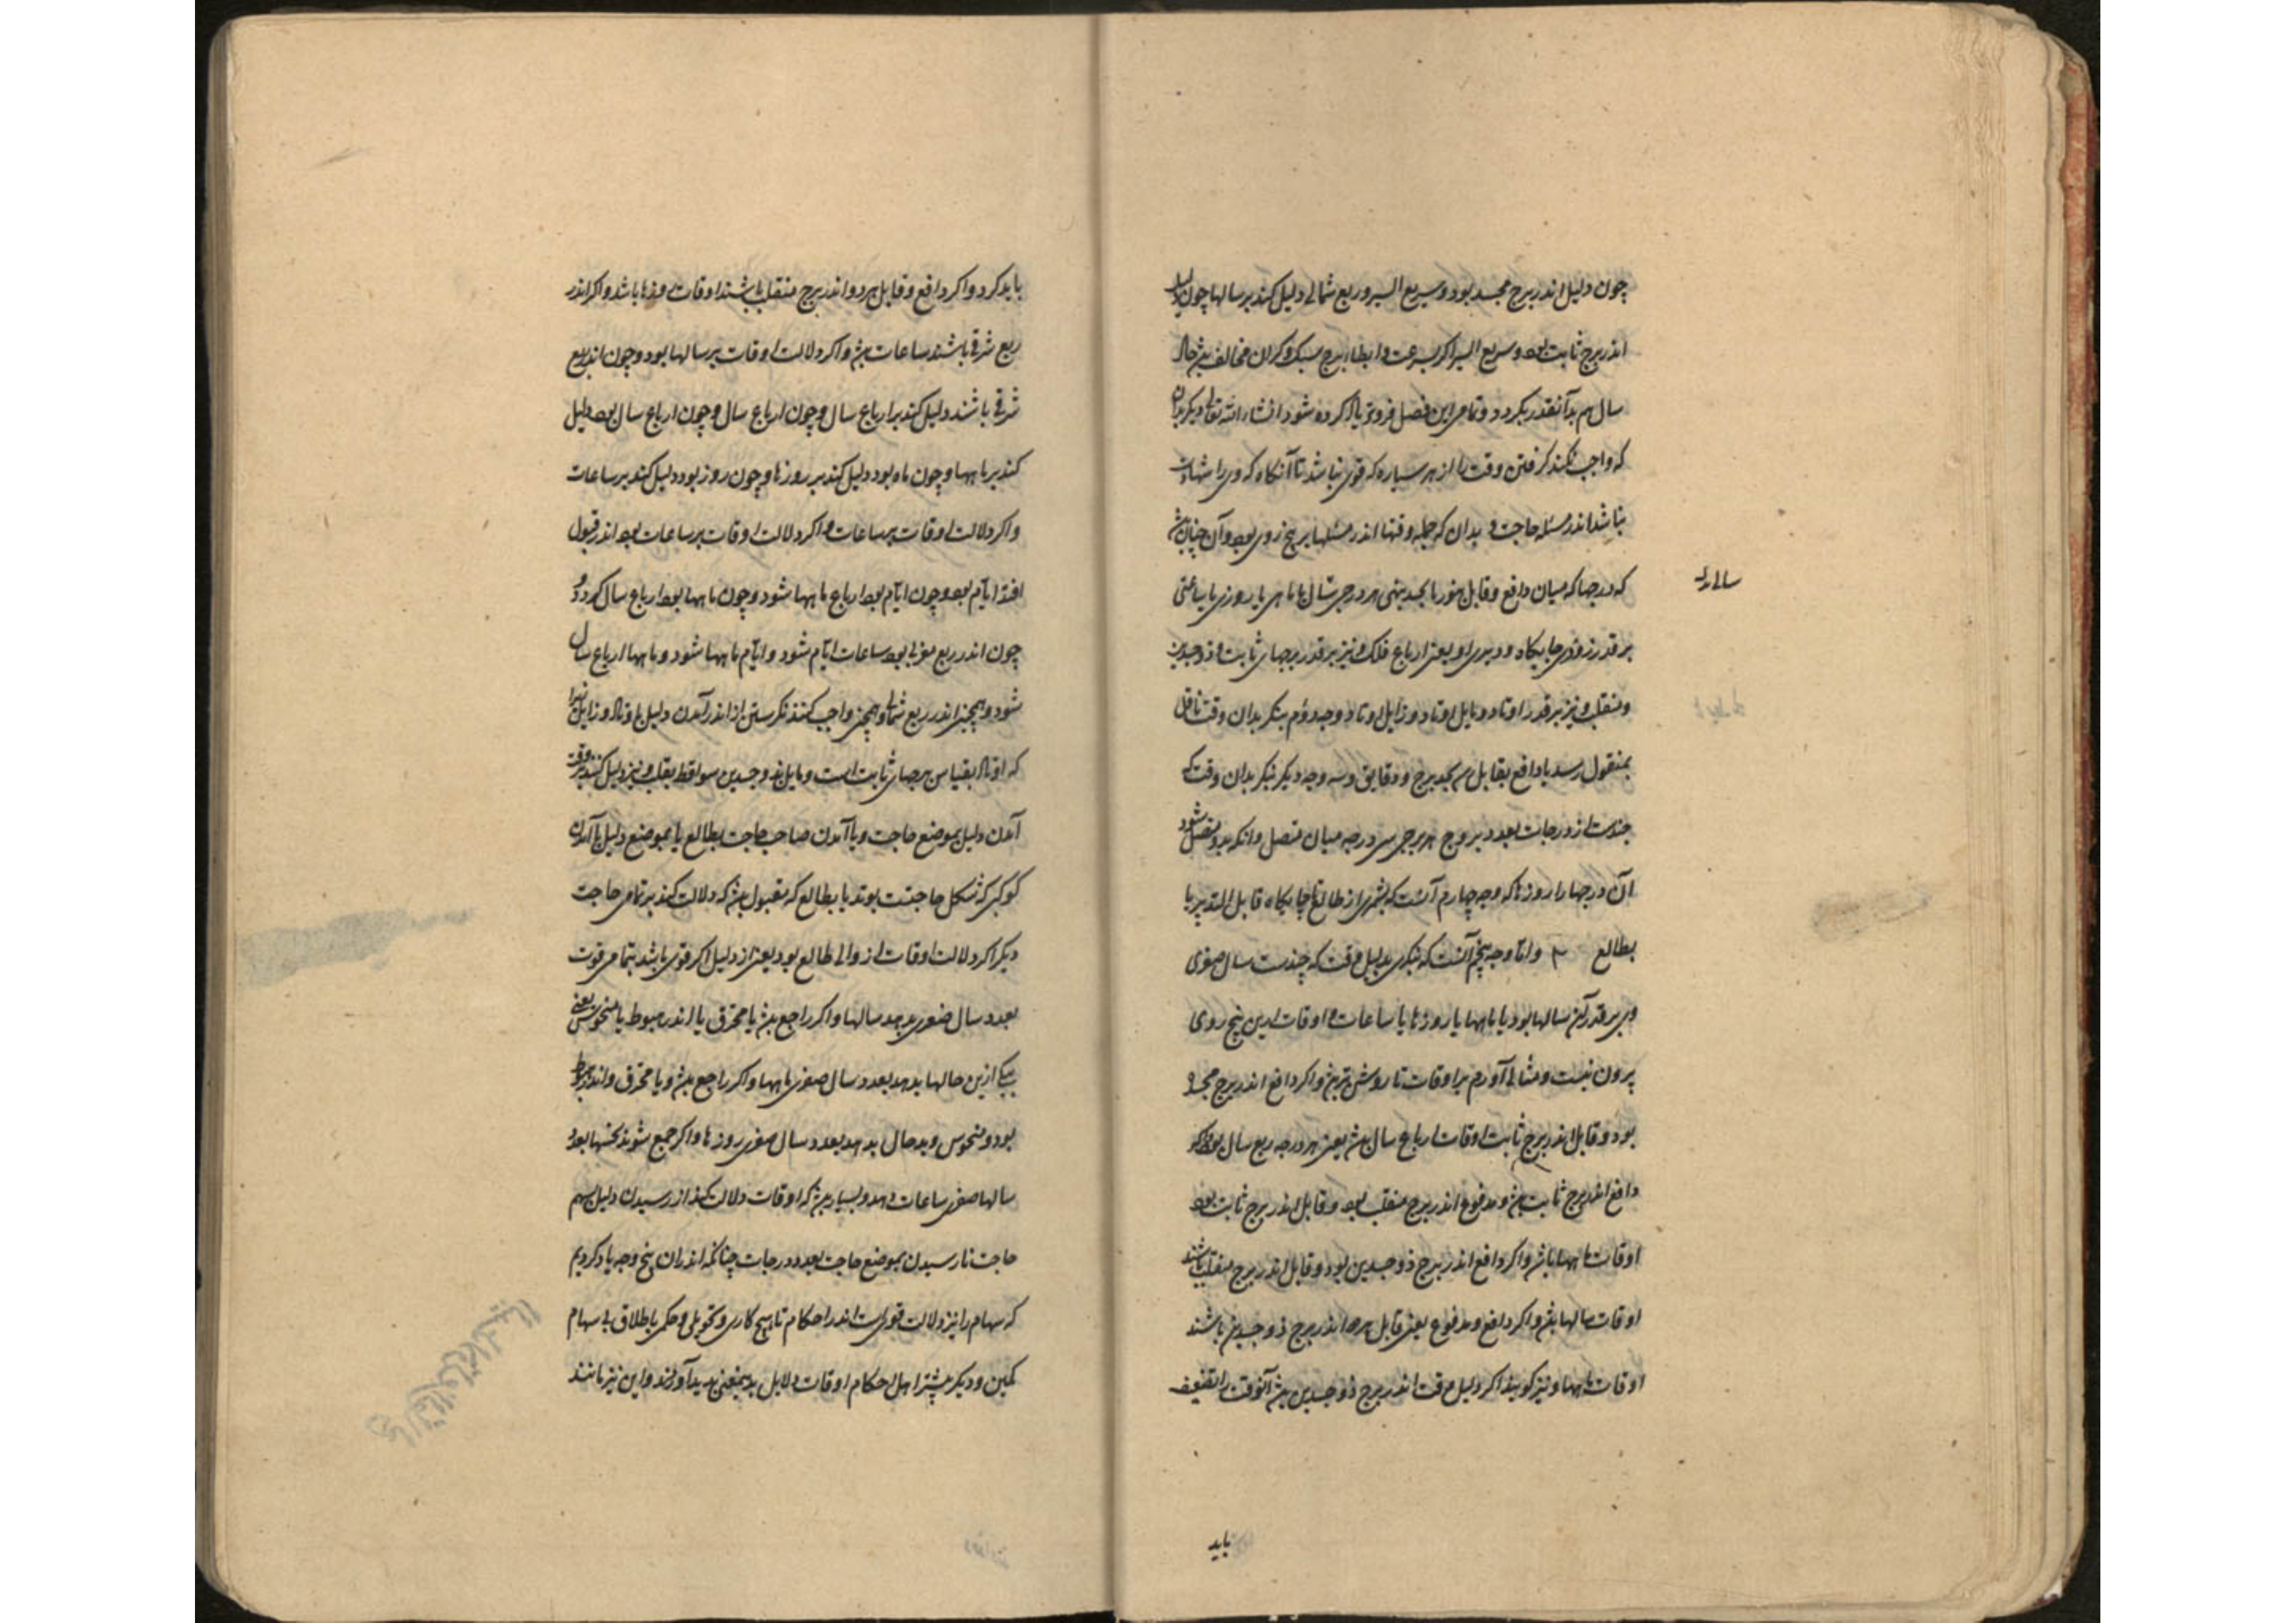 چون دلیل اندر برج مجسد بود و سریع السیر و ربع شمالی دلیل کند بر سالها چون
اندر برج ثابت بود و سریع السیر اکر بسرعت و ابطاء برج سبک و کران مخالف حال
سال هم بدآنقدر بکردد و تمامی این فصل فروتر یاد کرده شود انشاء الله تعالی دیکر بدان
که واجب نکند کرفتن وقت را از هر سیاره که قوی نباشد تا آنکاه که وی را شهادت
نباشد اندر مسئله حاجت و بدان که جمله وقتها اندر مسئلها بر پنج روی بود و آن چنان
که درجها که میان دافع و قابل بنور یا بجسد بنهی هر درجی سال یا ماهی یا روزی یا ساعتی
بر قدر زودی جایکاه و دیری او یعنی ارباع فلک و نیز بر قدر برجهای ثابت و ذوجسدین
و منقلب و نیز بر قدر اوتاد و مایل اوتاد و زایل اوتاد وجه دوم بنکر بدان وقت ناقل
بمنقول رسد یا دافع بقابل هم بجد برج و دقایق وسه وجه دیکر بنکر بدان وقت که
چندست از درجات بعدد بروج هر برجی سی درجه میان متصل و انکه بدو متصل شود
آن درجها را روزها که وجه چهارم آنست که بشمری از طالع تا جایکاه قابل التدبیر یا
بطالع و اما وجه پنجم آنست که بنکری بدلیل وقت که چندست سال صغری
وی بر قدر آن سالها بود یا ماهها یا روزها یا ساعات و اوقات ازین پنج روی
بیرون نیست و مثالی آوردم بر اوقات تا روشن‌تر بینی و اکر دافع اندر برج مجسد
بود و قابل اندر برج ثابت اوقات ارباع سال یعنی هر درجه ربع سال بود و اکر
دافع اندر برج ثابت و مدفوع اندر برج منقلب بود و قابل اندر برج ثابت بود
اوقات ماهها باشد و اکر دافع اندر برج ذوجسدین بود و قابل اندر برج منقلب باشند
اوقات سالها و اکر دافع و مدفوع یعنی قابل هر دو اندر برج ذوجسدین باشند
اوقات ماهها و نیز کویند اکر دلیل وقت اندر برج ذوجسدین آنوقت را تضعیف
باید
باید کرد و اکر دافع و قابل هر دو اندر برج منقلب باشند اوقات روزها باشد و اکر اندر
ربع شرقی باشند ساعات و اکر دلالت اوقات بر سالها بود و چون اندر ربع
شرقی باشند دلیل کند بر ارباع سال و چون ارباع سال و چون ارباع سال بود دلیل
کند بر ماهها و چون ماه بود دلیل کند بر روزها و چون روز بود دلیل کند بر ساعات
و اکر دلالت اوقات بر ساعات و اکر دلالت اوقات بر ساعات بود اندر قبول
افتد ایام بود و چون ایام بود ارباع ماهها شود و چون ماهها بود ارباع سال کردد و
چون اندر ربع مغربی بود ساعات ایام شود و ایام ماهها شود و ماهها ارباع سال
شود و همچنین اندر ربع شمالی و همچنین واجب کنند نکرستن از اندر آمدن دلیل باوتاد و زایل زیرا
که اوتاد بقیاس برجهای ثابت است و مایل ذوجسدین سواقط بقلب و نیز دلیل کنند بر وقت
آمدن دلیل بموضع حاجت و یا آمدن صاحب حاجت بطالع یا بموضع دلیل یا آمدن
کوکبی که شکل حاجتت بوند یا بطالع که مقبول که دلالت کند بر تمامی حاجت
دیکر اکر دلالت اوقات از والی طالع بود یعنی از دلیل اکر قوی باشد بتمامی قوت
بعدد سال صغری بدهد سالها و اکر راجع یا محترق یا اندر هبوط یا منحوس یعنی
یکی ازین حالها بدهد بعدد سال صغری ماهها و اکر راجع و یا محترق و اندر هبوط
بود و منحوس و بدحال بدهد بعدد سال صغری روزها و اکر جمع شوند نحسها بعدد
سالها صغری ساعات دهد و بسیار که اوقات دلالت کند از رسیدن دلیل سهم
حاجت تا رسیدن بموضع حاجت بعدد درجات چنانکه اندران پنج وجه یاد کردیم
که سهام را نیز دلالت قویست اندر احکام تا هیچ کاری و تحویلی و حکمی باطلاق بی سهام
نکنین و دیکر بیشتر اهل احکام اوقات دلایل بدیمعنی پدید آوردند و این نیز مانند